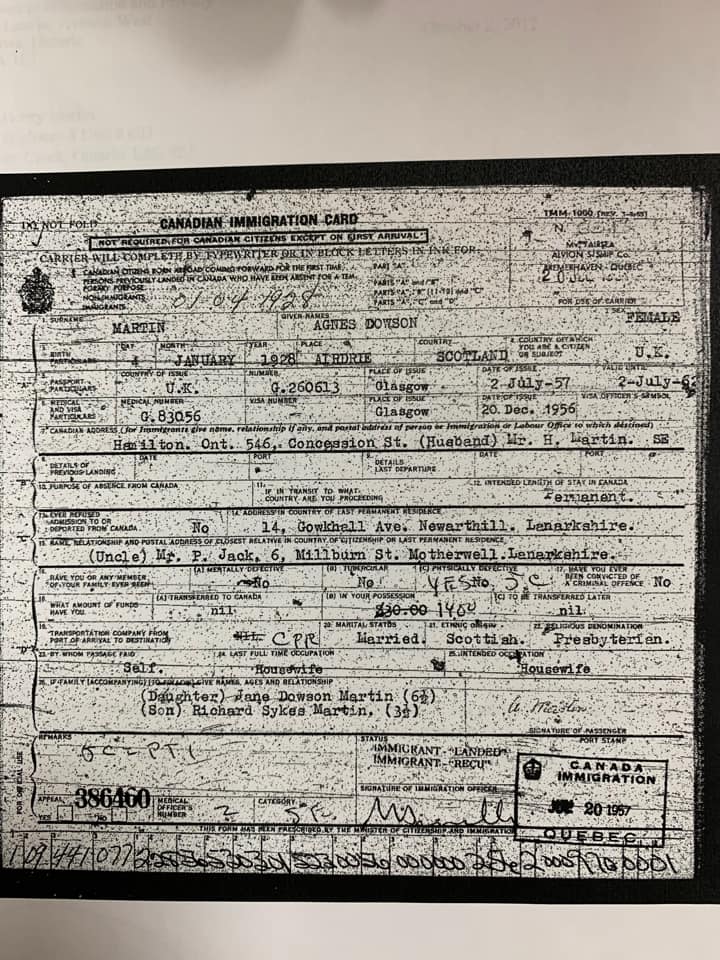 DO NOT FOLD
CANADIAN IMMIGRATION CARD
IMM-1000
NOT REQUIRED FOR CANADIAN CITIZENS EXCEPT ON FIRST ARRIVAL
CARRIER WILL COMPLETE BY TYPEWRITER OR IN BLOCK LETTERS IN INK FOR
CANADIAN CITIZENS BORN ABROAD COMING FORWARD FOR THE FIRST TIME PART "A"
PERSONS PREVIOUSLY LANDED IN CANADA WHO HAVE BEEN ABSENT FOR A TEMPORARY PURPOSE PARTS "A" and "B"
NON-IMMIGRANTS
IMMIGRANTS PARTS "A", "C" and "D"
BREMERHAVEN - QUEBEC
01 04 1928
FOR USE OF CARRIER
SURNAME GIVEN NAMES SEX
MARTIN AGNES DOWSON FEMALE
BIRTH PARTICULARS DAY MONTH YEAR PLACE COUNTRY COUNTRY OF WHICH YOU ARE A CITIZEN OR SUBJECT
4 JANUARY 1928 AIRDRIE SCOTLAND U.K.
PASSPORT PARTICULARS COUNTRY OF ISSUE NUMBER PLACE OF ISSUE DATE OF ISSUE VALID UNTIL
U.K. G.260613 Glasgow 2 July-57 2-July-62
MEDICAL AND VISA PARTICULARS MEDICAL NUMBER VISA NUMBER PLACE OF ISSUE DATE OF ISSUE VISA OFFICER'S SYMBOL
G.83056 Glasgow 20. Dec. 1956
7. CANADIAN ADDRESS (for Immigrants give name, relationship if any, and postal address of person or Immigration or Labour Office to which destined)
Hamilton. Ont. 546, Concession St. (Husband) Mr. H. Martin. SE
8. DETAILS OF PREVIOUS LANDING DATE PORT 9. DETAILS LAST DEPARTURE DATE PORT
10. PURPOSE OF ABSENCE FROM CANADA 11. IF IN TRANSIT TO WHAT COUNTRY ARE YOU PROCEEDING 12. INTENDED LENGTH OF STAY IN CANADA
Permanent.
13. EVER REFUSED ADMISSION TO OR DEPORTED FROM CANADA 14. ADDRESS IN COUNTRY OF LAST PERMANENT RESIDENCE
No 14, Gowkhall Ave. Newarthill. Lanarkshire.
15. NAME, RELATIONSHIP AND POSTAL ADDRESS OF CLOSEST RELATIVE IN COUNTRY OF CITIZENSHIP OR LAST PERMANENT RESIDENCE
(Uncle) Mr. P. Jack, 6, Millburn St. Motherwell. Lanarkshire.
16. HAVE YOU OR ANY MEMBER OF YOUR FAMILY EVER BEEN (A) MENTALLY DEFECTIVE (B) TUBERCULAR (C) PHYSICALLY DEFECTIVE 17. HAVE YOU EVER BEEN CONVICTED OF A CRIMINAL OFFENCE
No No YES No No
18. WHAT AMOUNT OF FUNDS HAVE YOU (A) TRANSFERRED TO CANADA (B) IN YOUR POSSESSION (C) TO BE TRANSFERRED LATER
nil $30.00 nil
19. TRANSPORTATION COMPANY FROM PORT OF ARRIVAL TO DESTINATION 20. MARITAL STATUS 21. ETHNIC ORIGIN 22. RELIGIOUS DENOMINATION
NIL CPR Married. Scottish. Presbyterian.
23. BY WHOM PASSAGE PAID 24. LAST FULL TIME OCCUPATION 25. INTENDED OCCUPATION
Self. Housewife Housewife
26. IF FAMILY (ACCOMPANYING) (TO FOLLOW) GIVE NAMES, AGES AND RELATIONSHIP
(Daughter) Jane Dowson Martin (6½)
(Son) Richard Sykes Martin, (3½)
A. Martin
SIGNATURE OF PASSENGER
REMARKS STATUS PORT STAMP
IMMIGRANT-"LANDED"
IMMIGRANT-"RECU"
CANADA
IMMIGRATION
20 1957
QUEBEC
FOR OFFICIAL USE
SIGNATURE OF IMMIGRATION OFFICER
APPEAL 386460 MEDICAL OFFICER'S NUMBER 2 CATEGORY
YES NO
THIS FORM HAS BEEN PRESCRIBED BY THE MINISTER OF CITIZENSHIP AND IMMIGRATION